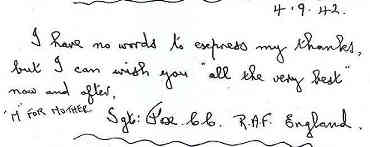 4.9.42.
I have no words to express my thanks,
but I can wish you "all the very best"
now and after,
"M" FOR MOTHER Sgt: Fox. C.C. R.A.F. England.